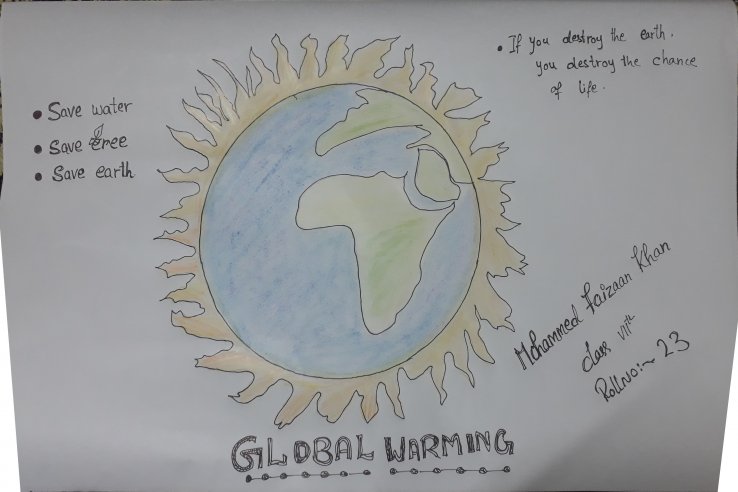 • Save water
• Save tree
• Save earth
• If you destroy the earth.
you destroy the chance
of life.
Mohammed Faizaan Khan
class VIIth
Roll no:~ 23
GLOBAL WARMING